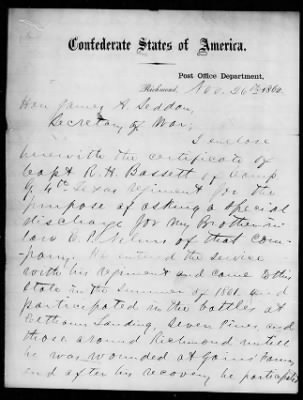 Confederate States of America.
Post Office Department,
Richmond, Nov. 26th 1862
Hon James A. Seddon,
Secretary of War,
I enclose
herewith the certificate of
Capt R. H. Bassett of Comp
G, 4th Texas regiment for the
purpose of asking a special
discharge for my Brother in
law E. P. Nelms of that com-
pany. He entered the service
with his regiment and came to this
State in the summer of 1861 and
participated in the battles at
Eltham's Landing, Seven Pines, and
those around Richmond untill
he was wounded at Gaines' Farm,
and after his recovery he participated